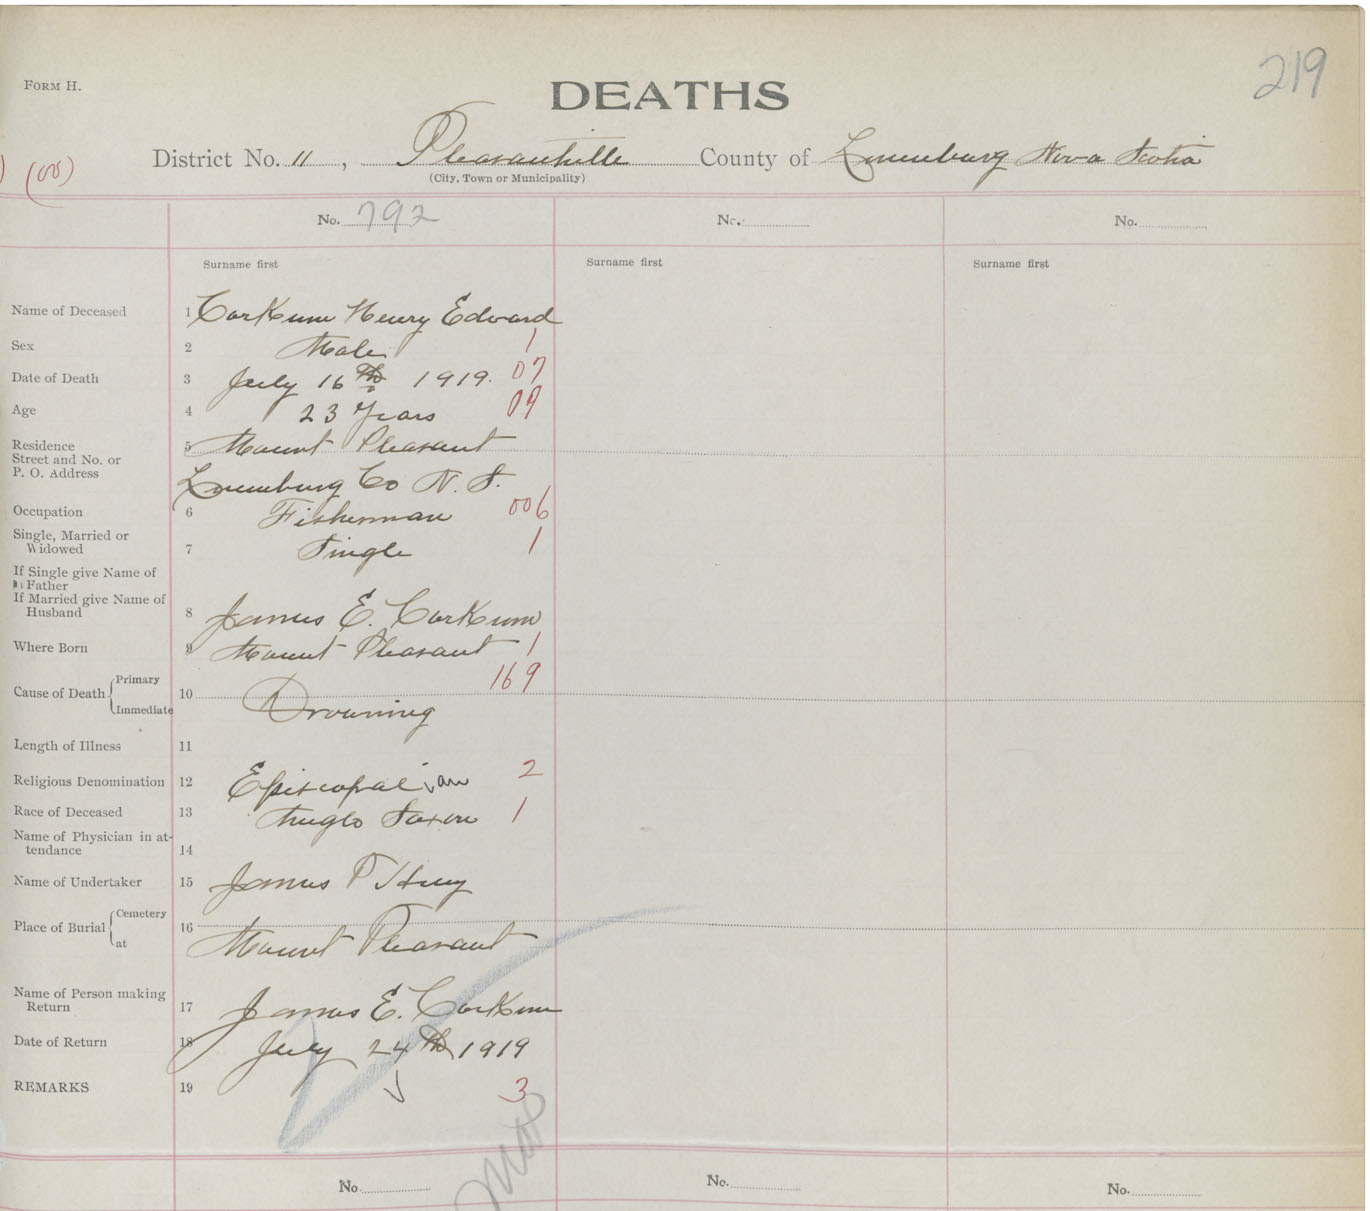 219
FORM H.
DEATHS
District No. 11, Pleasantville County of Lunenburg Nova Scotia
(City, Town or Municipality)
No. 792 No. No.
Surname first Surname first Surname first
Name of Deceased 1 Corkum Henry Edward
Sex 2 Male 1
Date of Death 3 July 16th 1919. 07
Age 4 23 Years 09
Residence 5 Mount Pleasant
Street and No. or
P. O. Address Lunenburg Co N. S.
Occupation 6 Fisherman 006
Single, Married or
Widowed 7 Single 1
If Single give Name of
Father
If Married give Name of
Husband 8 James E. Corkum
Where Born 9 Mount Pleasant 1
169
Cause of Death { Primary
Immediate 10 Drowning
Length of Illness 11
Religious Denomination 12 Episcopalian 2
Race of Deceased 13 Anglo Saxon 1
Name of Physician in at-
tendance 14
Name of Undertaker 15 James P
Place of Burial { Cemetery
at 16 Mount Pleasant
Name of Person making
Return 17 James E. Corkum
Date of Return 18 July 24th 1919
REMARKS 19 3
No. No. No.